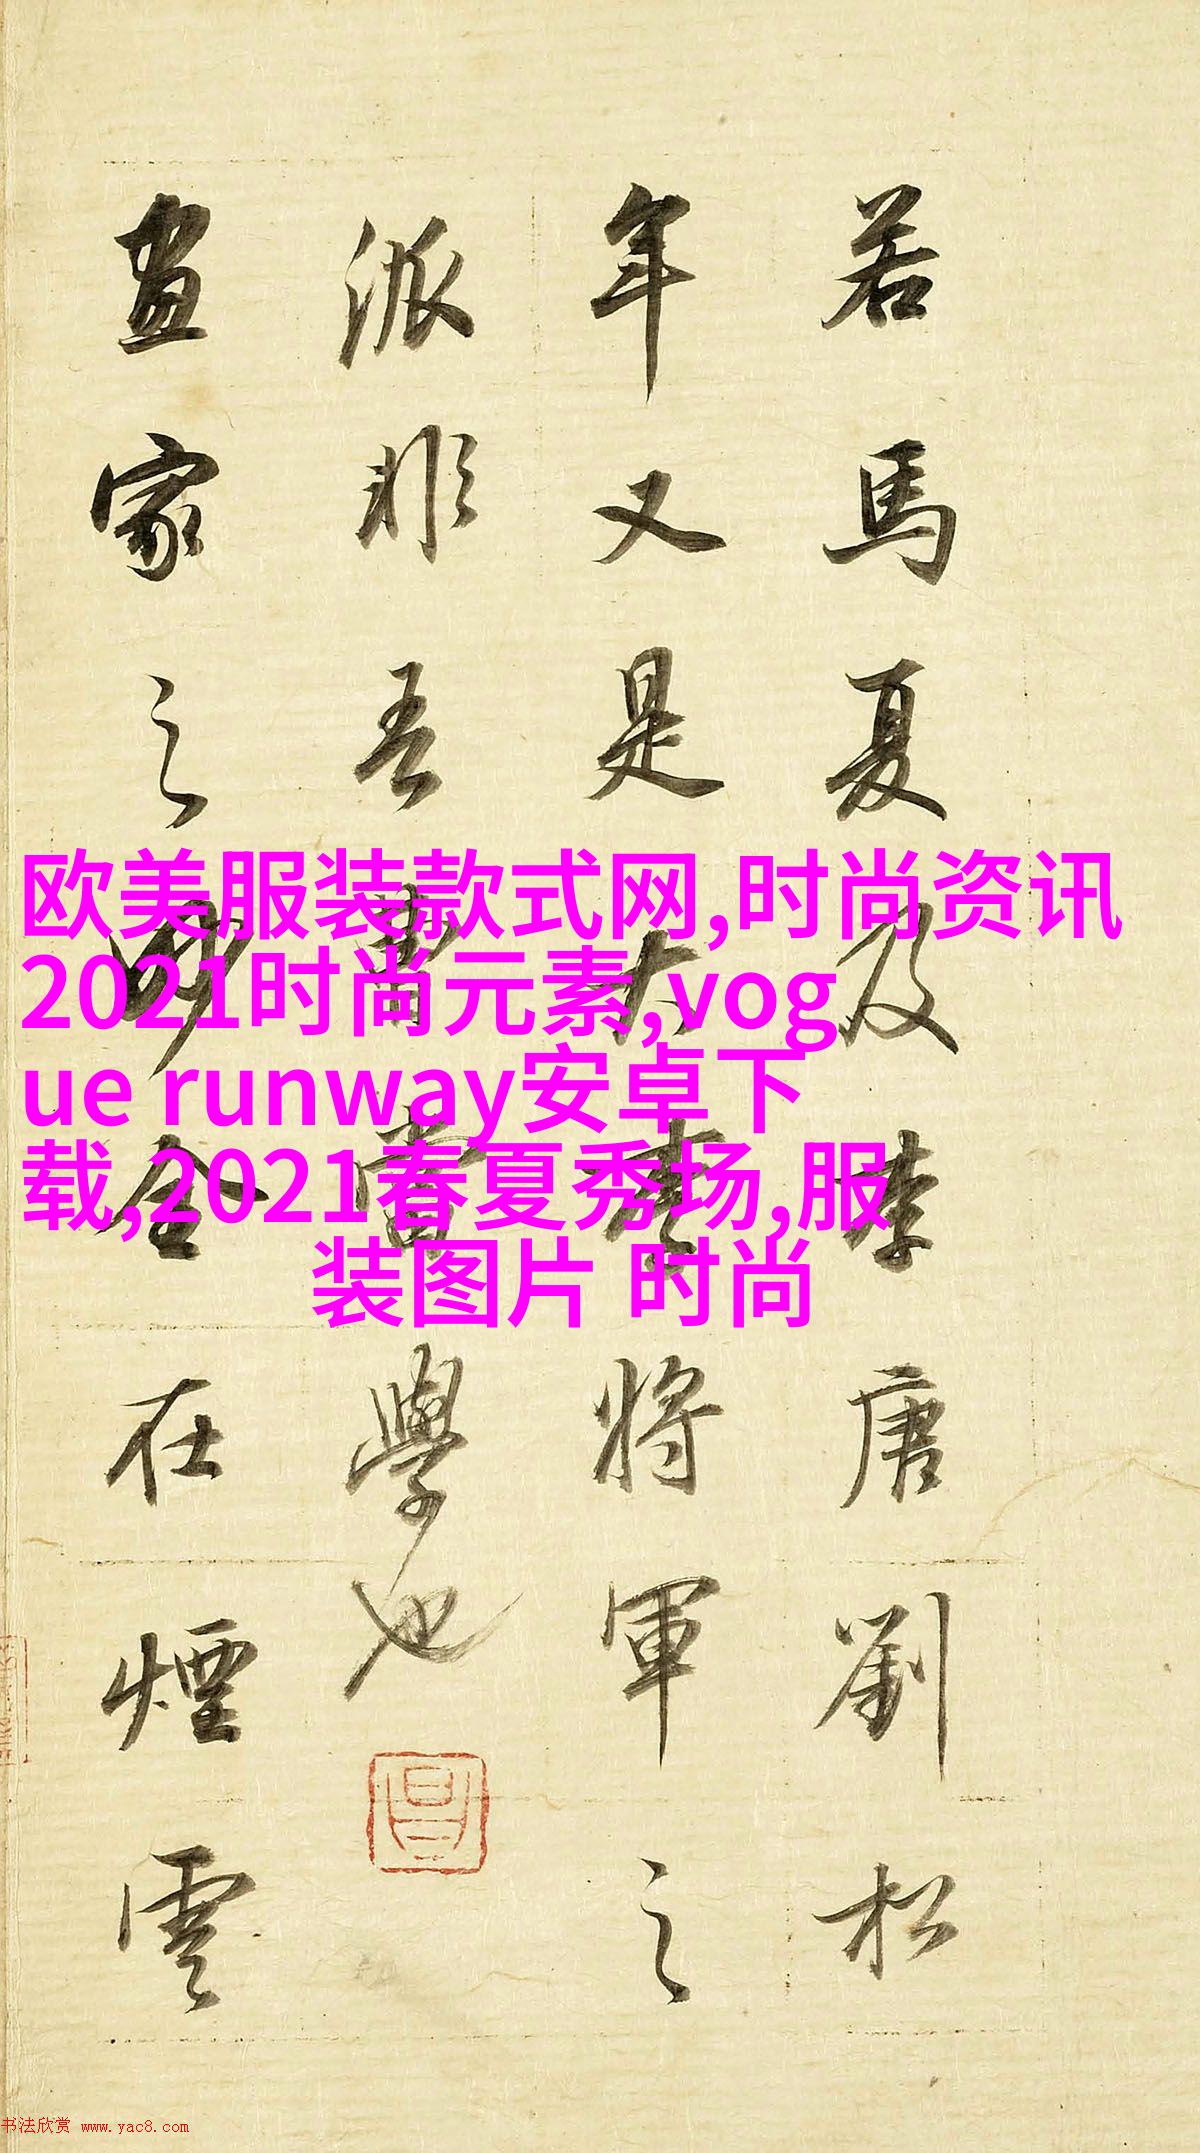 若馬夏及李唐劉松
年又是大李將軍之
派非吾曹當學也
畫家之妙全在煙雲
欧美服装款式网,时尚资讯
2021时尚元素,vog
ue runway安卓下
载,2021春夏秀场,服
装图片 时尚
书法欣赏 www.yac8.com